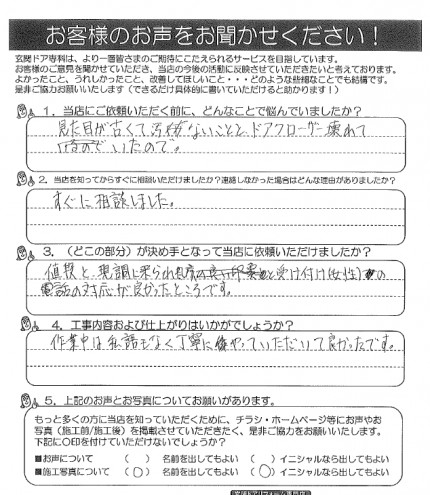 お客様のお声をお聞かせください！
玄関ドア専科は、より一層皆さまのご期待にこたえられるサービスを目指しています。
お客様のご意見を聞かせていただき、当店の今後の活動に反映させていただきたいと考えております。
よかったこと、うれしかったこと、改善してほしいこと・・・どのような些細なことでも結構です。
是非ご協力お願いいたします（できるだけ具体的に書いていただけると助かります！）
1．当店にご依頼いただく前に、どんなことで悩んでいましたか？
見た目が古くて ないことと ドアクローザー壊れて
いたので。
2．当店を知ってからすぐに相談いただけましたか？連絡しなかった場合はどんな理由がありましたか？
すぐに相談しました。
3．（どこの部分）が決め手となって当店に依頼いただけましたか？
値段と現調に来られた 受け付け(女性)の
電話の対応が良かったところです。
4．工事内容および仕上がりはいかがでしょうか？
作業中は私語もなく丁寧に やっていただいて良かったです。
5．上記のお声とお写真についてお願いがあります。
もっと多くの方に当店を知っていただくために、チラシ・ホームページ等にお声やお
写真（施工前/施工後）を掲載させていただきたく、是非ご協力をお願いいたします。
下記に〇印を付けていただけないでしょうか？
■お声について （ ） 名前を出してもよい （ ）イニシャルなら出してもよい
■施工写真について （〇） 名前を出してもよい （〇）イニシャルなら出してもよい